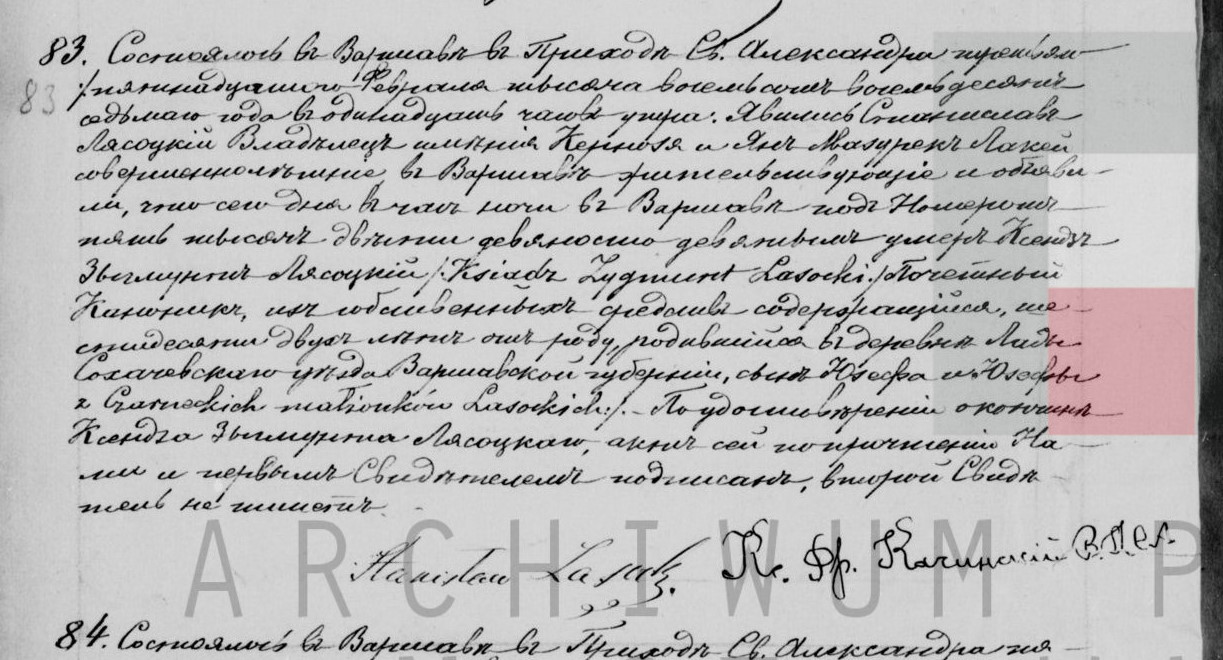 83. Состоялось въ Варшавѣ въ Приходѣ Св. Александра
83
/пятнадцатаго Февраля тысяча восемьсотъ восемьдесятъ
седьмаго года въ одинадцать часовъ утра. Явились Станиславъ
Лясоцкій Владѣлецъ имѣнія и Янъ Мазурекъ Лакей
совершеннолѣтніе, въ Варшавѣ жительствующіе и объяви-
ли, что сего дня въ часъ ночи въ Варшавѣ подъ Номеромъ
пять тысячъ двѣсти девяносто девятымъ умеръ Ксендзъ
Зыгмунтъ Лясоцкій /:Ksiądz Zygmunt Lasocki:/ Почетный
Каноникъ, изъ собственныхъ средствъ содержащійся, ше-
стидесяти двухъ лѣтъ отъ роду, родившійся въ деревнѣ
Сохачевскаго уѣзда Варшавской губерніи, сынъ Юзефа и Юзефы
z Czarneckich małżonków Lasockich:/. - По удостовѣреніи о кончинѣ
Ксендза Зыгмунта Лясоцкаго, актъ сей по прочтеніи На-
ми и первымъ Свидѣтелемъ подписанъ, второй Свидѣ-
тель не пишетъ.
Stanisław Lasocki.
Кс. Фр. Качинскій В.П.С.А.
ARCHIWUM P
84. Состоялось въ Варшавѣ въ Приходѣ Св. Александра